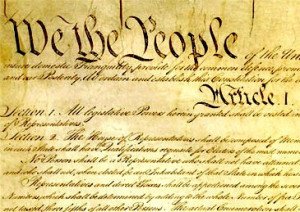 We the People of the
insure domestic Tranquility, provide for the common defence, promo
and our Posterity, do ordain and establish this Constitution for the
Article. I.
Section. 1. All legislative Powers herein granted shall be vested in
of Representatives.
Section. 2. The House of Representatives shall be composed of Mem
in each State shall have Qualifications requisite for Electors of the most numer
No Person shall be a Representative who shall not have attained
and who shall not, when elected, be an Inhabitant of that State in which
Representatives and direct Taxes shall be apportioned among the sever
Numbers, which shall be determined by adding to the whole
three fifths of all other Persons. The actual Enumeration